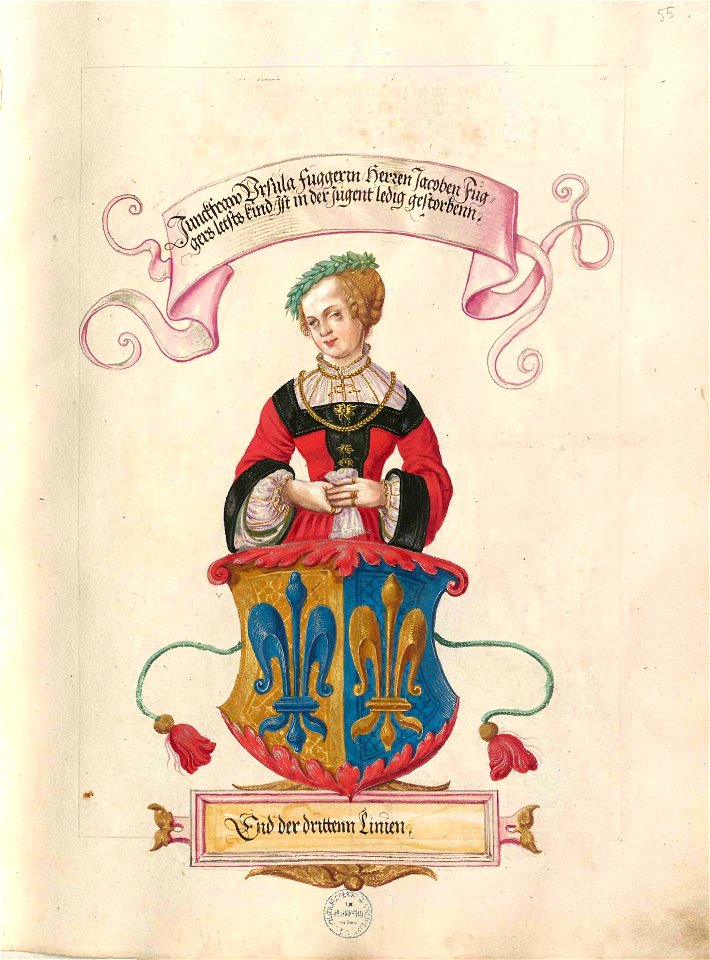 55.
Junckfraw Vrsula Fuggerin Herren Jacoben Fug-
gers letsts kind, Ist in der Jugent ledig gestorbenn.
End der drittenn Linien.